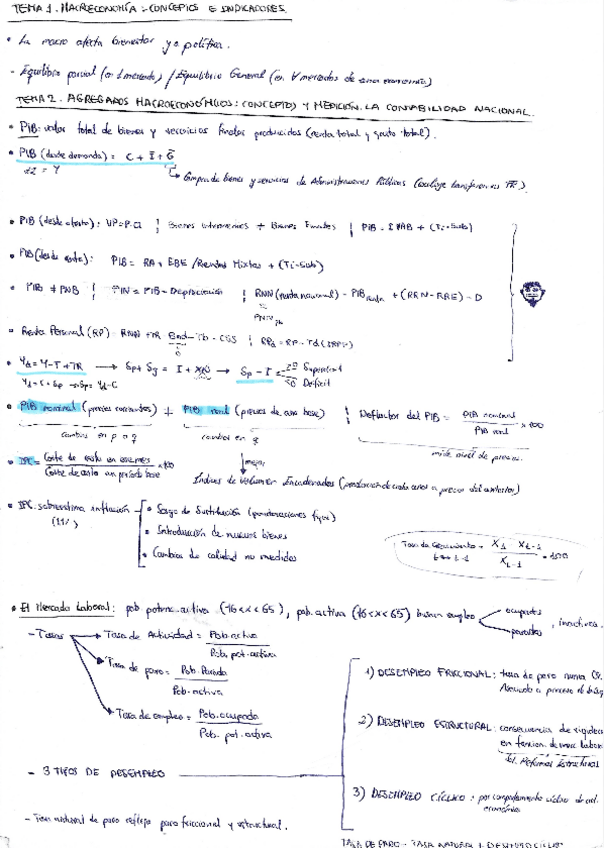 TEMA 1. MACROECONOMÍA: CONCEPTOS E INDICADORES.
• La macro afecta bienestar y a política.
- Equilibrio parcial (en 1 mercado) / Equilibrio General (en ∀ mercados de una economía)
TEMA 2. AGREGADOS MACROECONÓMICOS: CONCEPTO Y MEDICIÓN. LA CONTABILIDAD NACIONAL.
• PIB: valor total de bienes y servicios finales producidos (renta total y gasto total).
• PIB (desde demanda) = C + I + G
= Y
Compra de bienes y servicios de Administraciones Públicas (excluye transferencias TR)
• PIB (desde oferta): VP = P·Q ¦ Bienes intermedios + Bienes Finales ¦ PIB = ΣVAB + (Ti-Sub)
• PIB (desde renta): PIB = RA + EBE / Rentas Mixtas + (Ti-Sub)
• PIB ≠ PNB ¦ PIN = PIB - Depreciación ¦ RNN (renta nacional) = PIB + (RRN - RRE) - D
• Renta Personal (RP) = RNN + TR - Bnd - Tb - CSS ¦ RPd = RP - Td (IRPF)
• Yd = Y - T + TR → Sp + Sg = I + XN → Sp - I = >0 Superávit
<0 Déficit
Yd = C + Sp → Sp = Yd - C
• PIB nominal (precios corrientes) ≠ PIB real (precios de año base) ¦ Deflactor del PIB = PIB nominal / PIB real × 100
cambios en p o q
cambios en q
mide nivel de precios.
• IPC = Coste de cesta en / Coste de cesta en período base × 100
mejor
Índices de Volumen Encadenados (ponderación de cada año a precios del anterior)
• IPC sobreestima inflación
(1'1%)
• Sesgo de Sustitución (ponderaciones fijas)
• Introducción de nuevos bienes
• Cambios de calidad no medidos
Tasa de crecimiento = Xt - Xt-1 / Xt-1 × 100
t-1
• El Mercado Laboral: pob. potenc. activa (16<x<65), pob. activa (16<x<65) buscan empleo
ocupados
parados
, inactivos.
- Tasas
Tasa de Actividad = Pob. activa / Pob. pot. activa
Tasa de paro = Pob. Parada / Pob. activa
Tasa de empleo = Pob. ocupada / Pob. pot. activa
1) DESEMPLEO FRICCIONAL: tasa de paro nunca
Asociado a proceso de
2) DESEMPLEO ESTRUCTURAL: consecuencia de
en función de merc. labor
Sol. Reformas Estructurales
- 3 TIPOS DE DESEMPLEO
3) DESEMPLEO CÍCLICO: por comportamiento cíclico de
económica
- Tasa natural de paro refleja paro friccional y estructural.
TASA DE PARO - TASA NATURAL